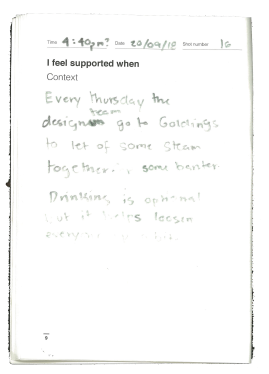 Time 4:40pm? Date 20/09/18 Shot number 16
I feel supported when
Context
Every Thursday the
team
design go to Goldings
to let of some steam
together. , some banter.
Drinking is optional
but it helps loosen
9